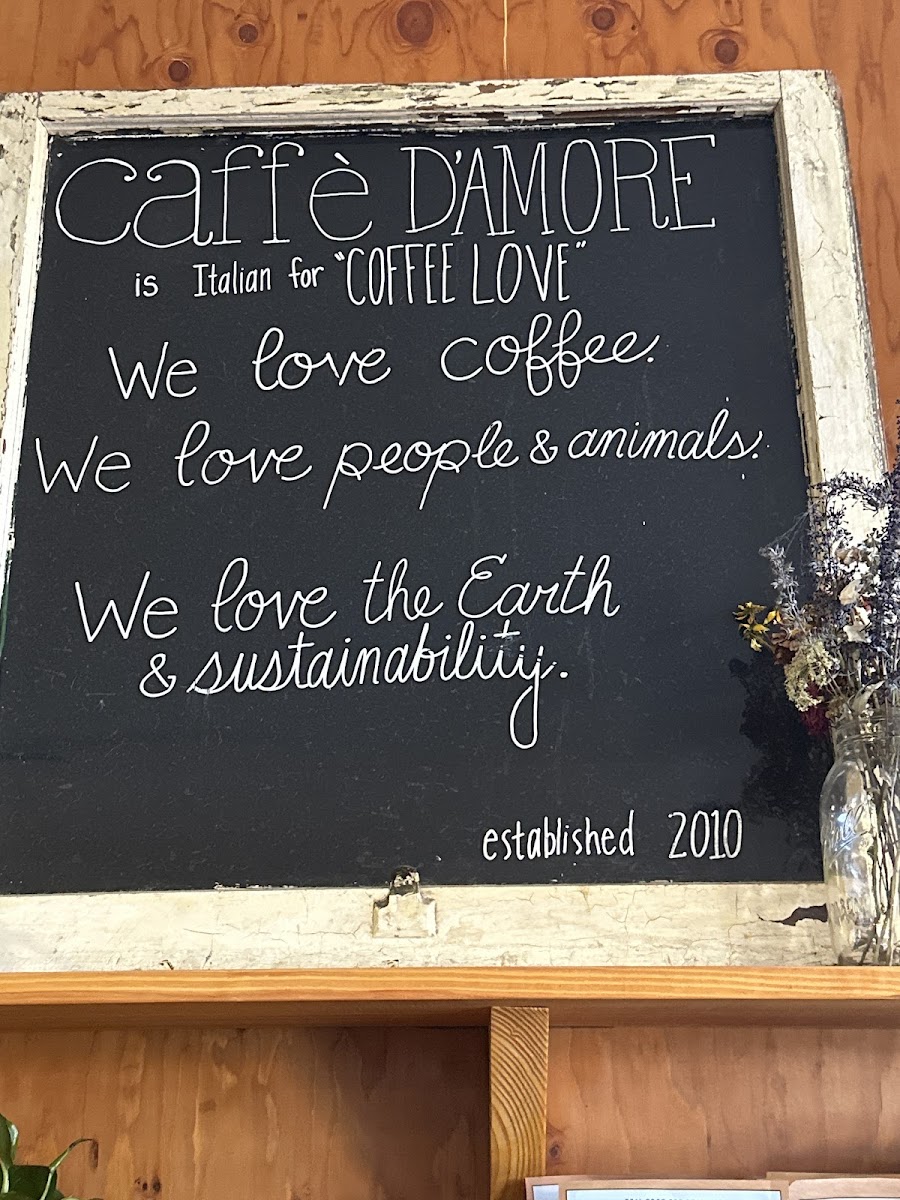 Caffè D'AMORE
is Italian for "COFFEE LOVE"
We love coffee.
We love people & animals.
We love the Earth
& sustainability.
established 2010